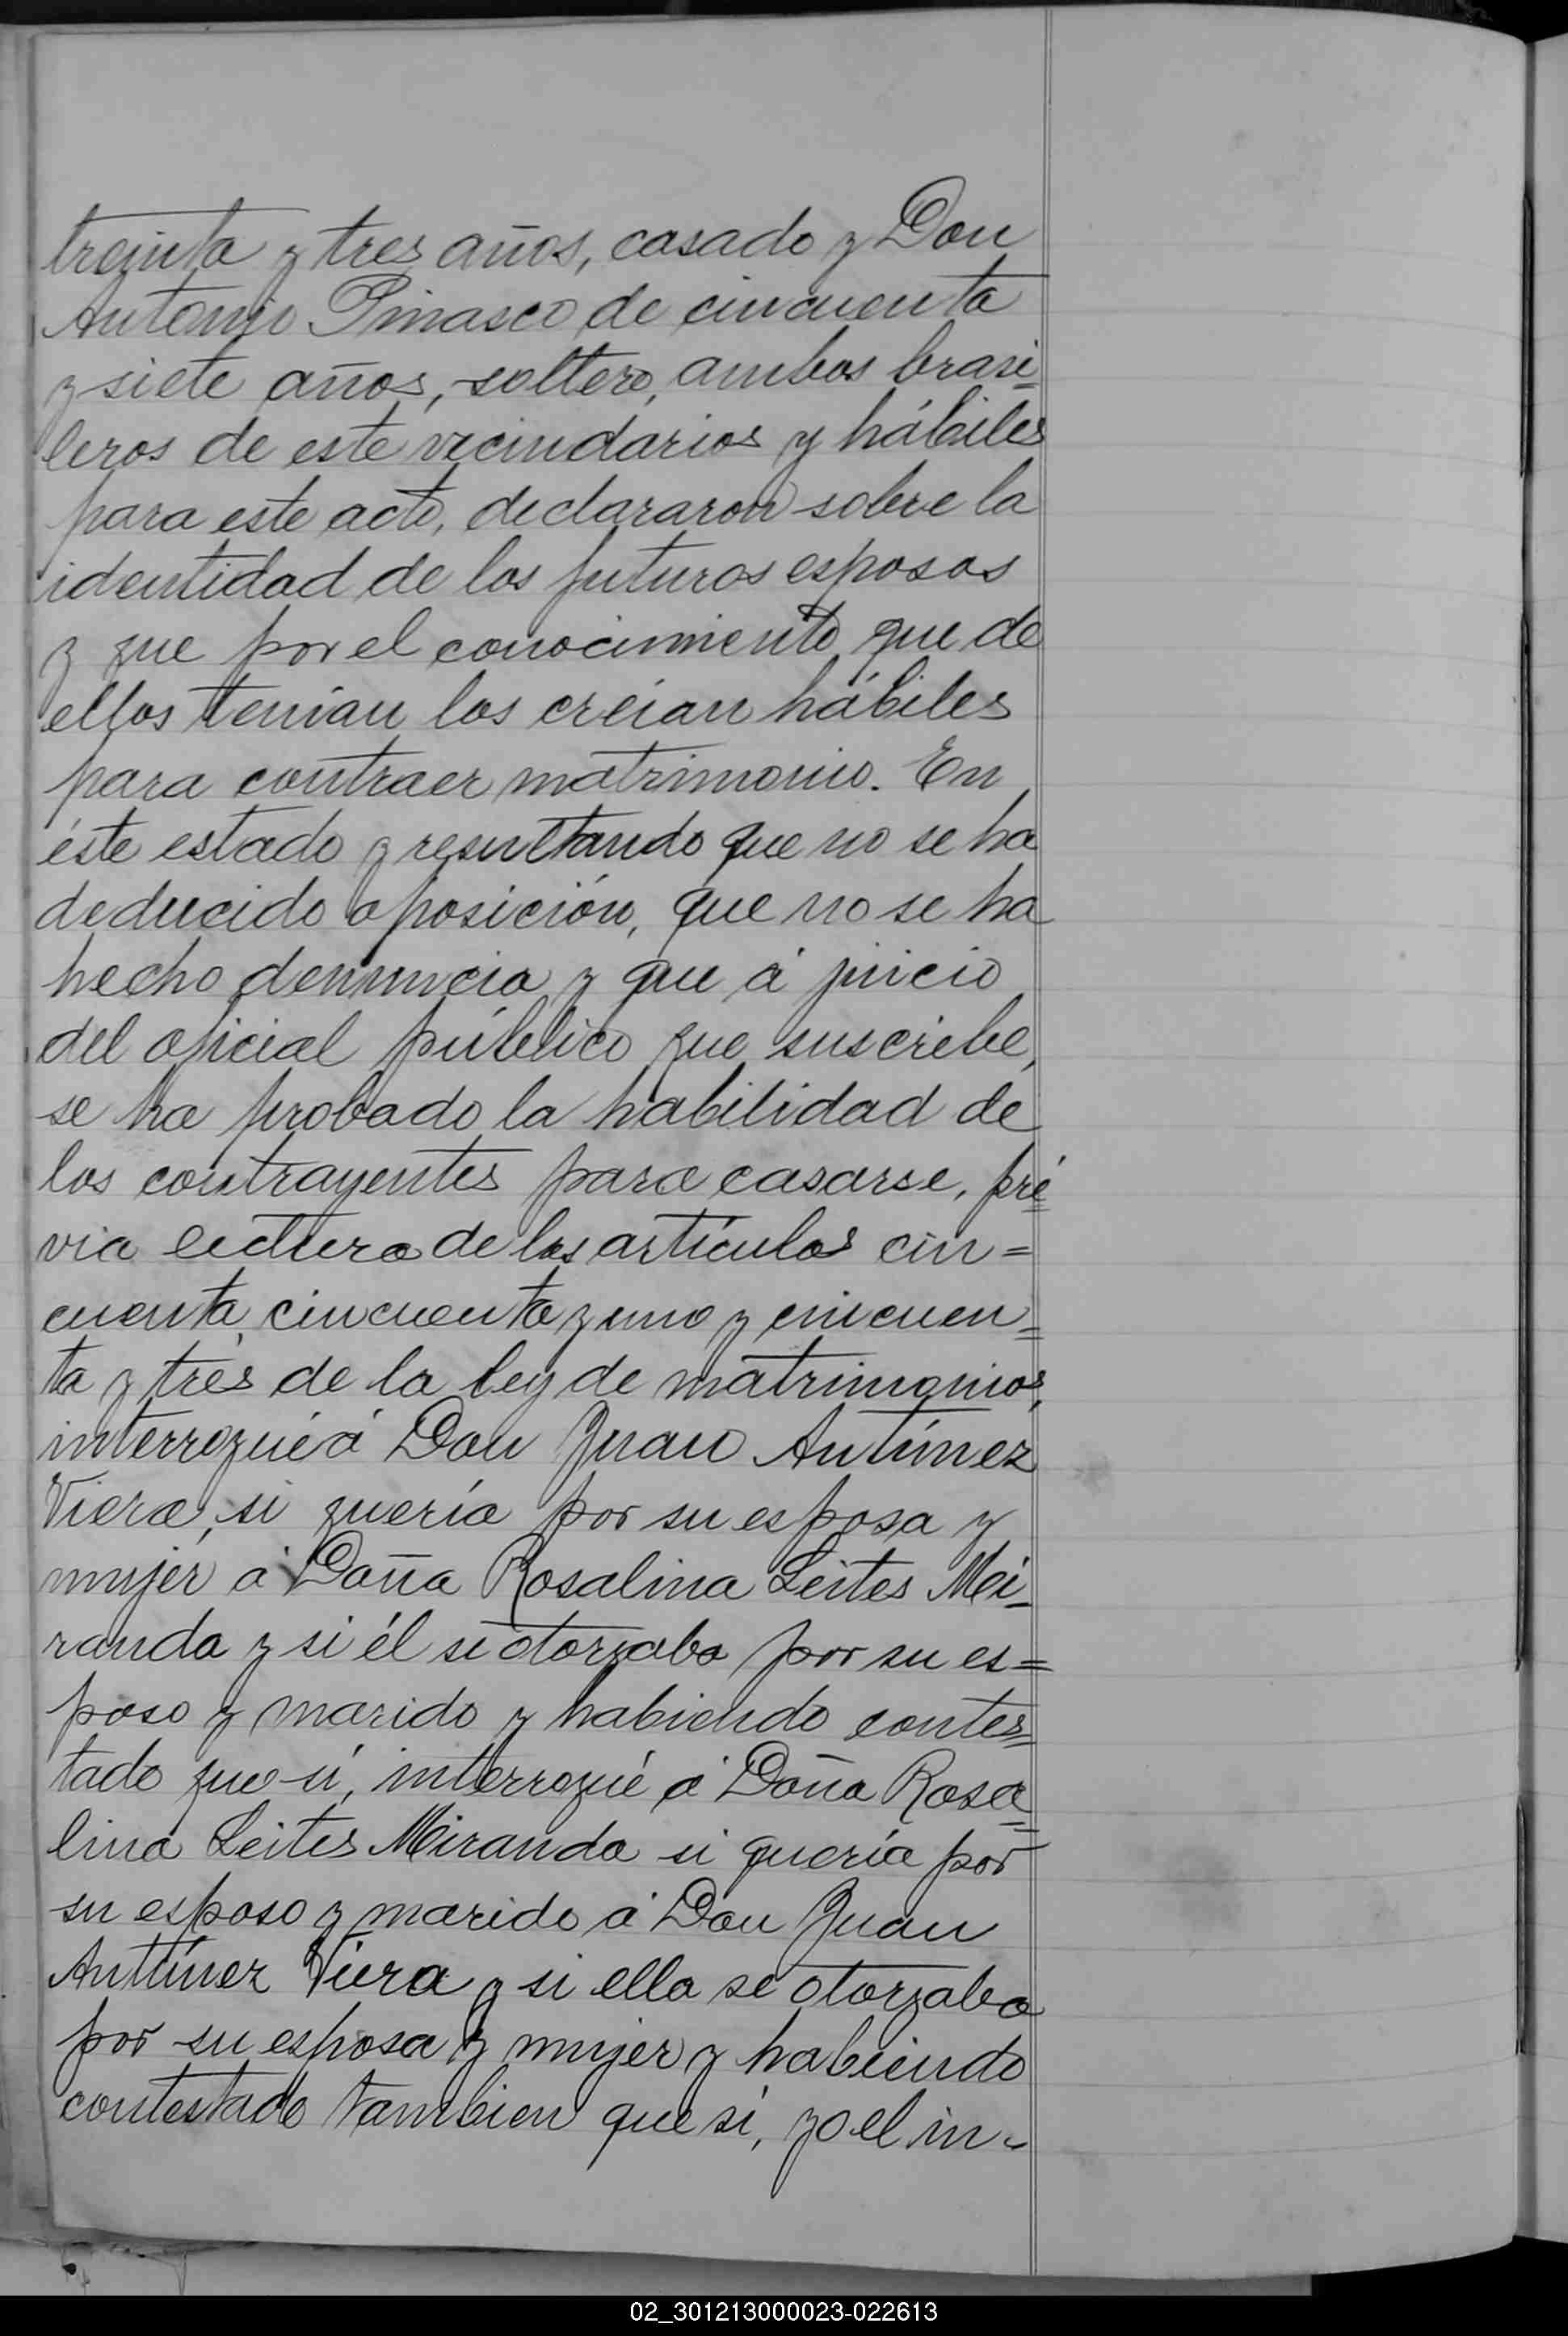 treinta y tres años, casado y Don
Antonio Pinasco de cincuenta
y siete años, soltero, ambos brasi=
leros de este vecindarios y hábiles
para este acto, declararon sobre la
identidad de los futuros esposos
y que por el conocimiento que de
ellos tenían los creían hábiles
para contraer matrimonio. En
éste estado y resultando que no se ha
deducido oposición, que no se ha
hecho denuncia y que á juicio
del oficial público que suscribe,
se ha probado la habilidad de
los contrayentes para casarse, pré=
via lectura de los artículos cin=
cuenta, cincuenta y uno y cincuen=
ta y tres de la ley de matrimonios,
interrogué á Don Juan Antúnez
Viera, si quería por su esposa y
mujer á Doña Rosalina Leites Mi-
randa y si él se otorgaba por su es=
poso y marido y habiendo contes=
tado que sí, interrogué á Doña Rosa=
lina Leites Miranda si quería por
su esposo y marido á Don Juan
Antúnez Viera y si ella se otorgaba
por su esposa y mujer y habiendo
contestado tambien que sí, yo el in-
02_301213000023-022613